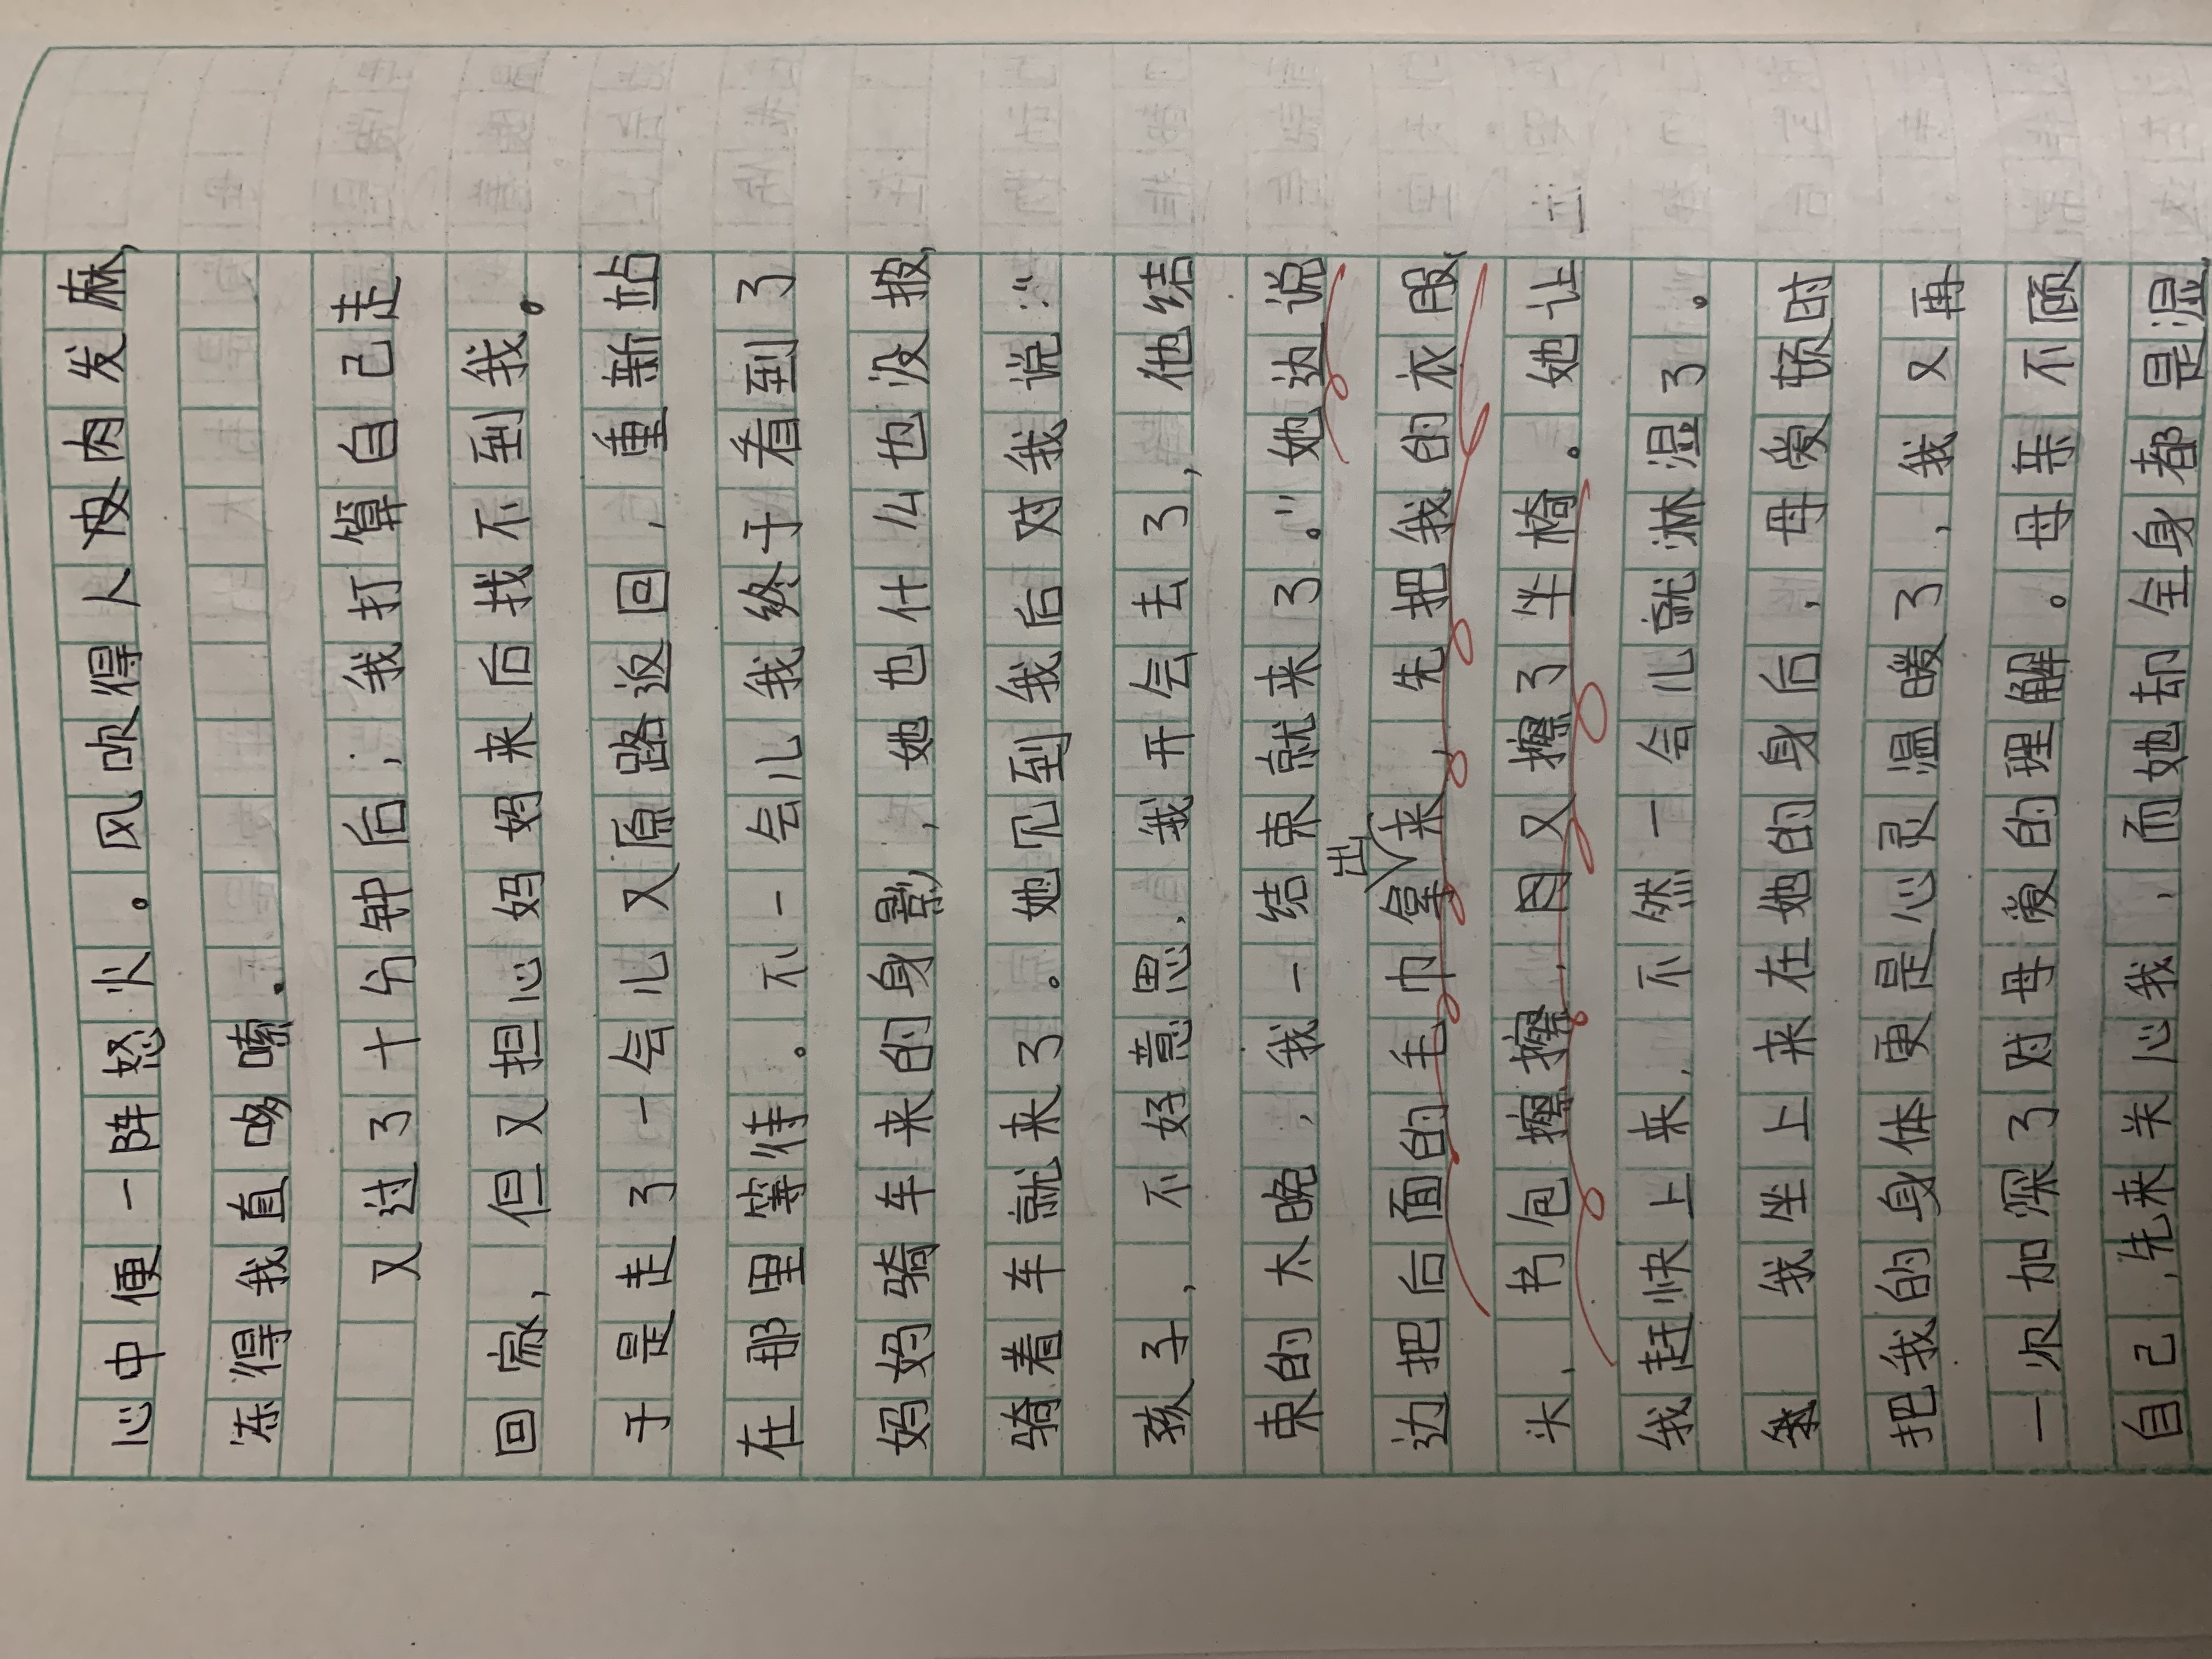 心中便一阵怒火。风吹得人皮肉发麻，
冻得我直哆嗦。
又过了十分钟后，我打算自己走
回家，但又担心妈妈来后找不到我。
于是走了一会儿又原路返回，重新站
在那里等待。不一会儿我终于看到了
妈妈骑车来的身影，她也什么也没披，
骑着车就来了。她见到我后对我说：“
孩子，不好意思，我开会去了，他结
束的太晚，我一结束就来了。”她边说
边把后面的毛巾拿出来，先把我的衣服，
头，书包擦擦，因又擦了坐椅。她让
我赶快上来，不然一会儿就淋湿了。
我坐上来在她的身后，母爱顿时
把我的身体更是心灵温暖了，我又再
一次加深了对母爱的理解。母亲不顾
自己，先来关心我，而她却全身都是湿，